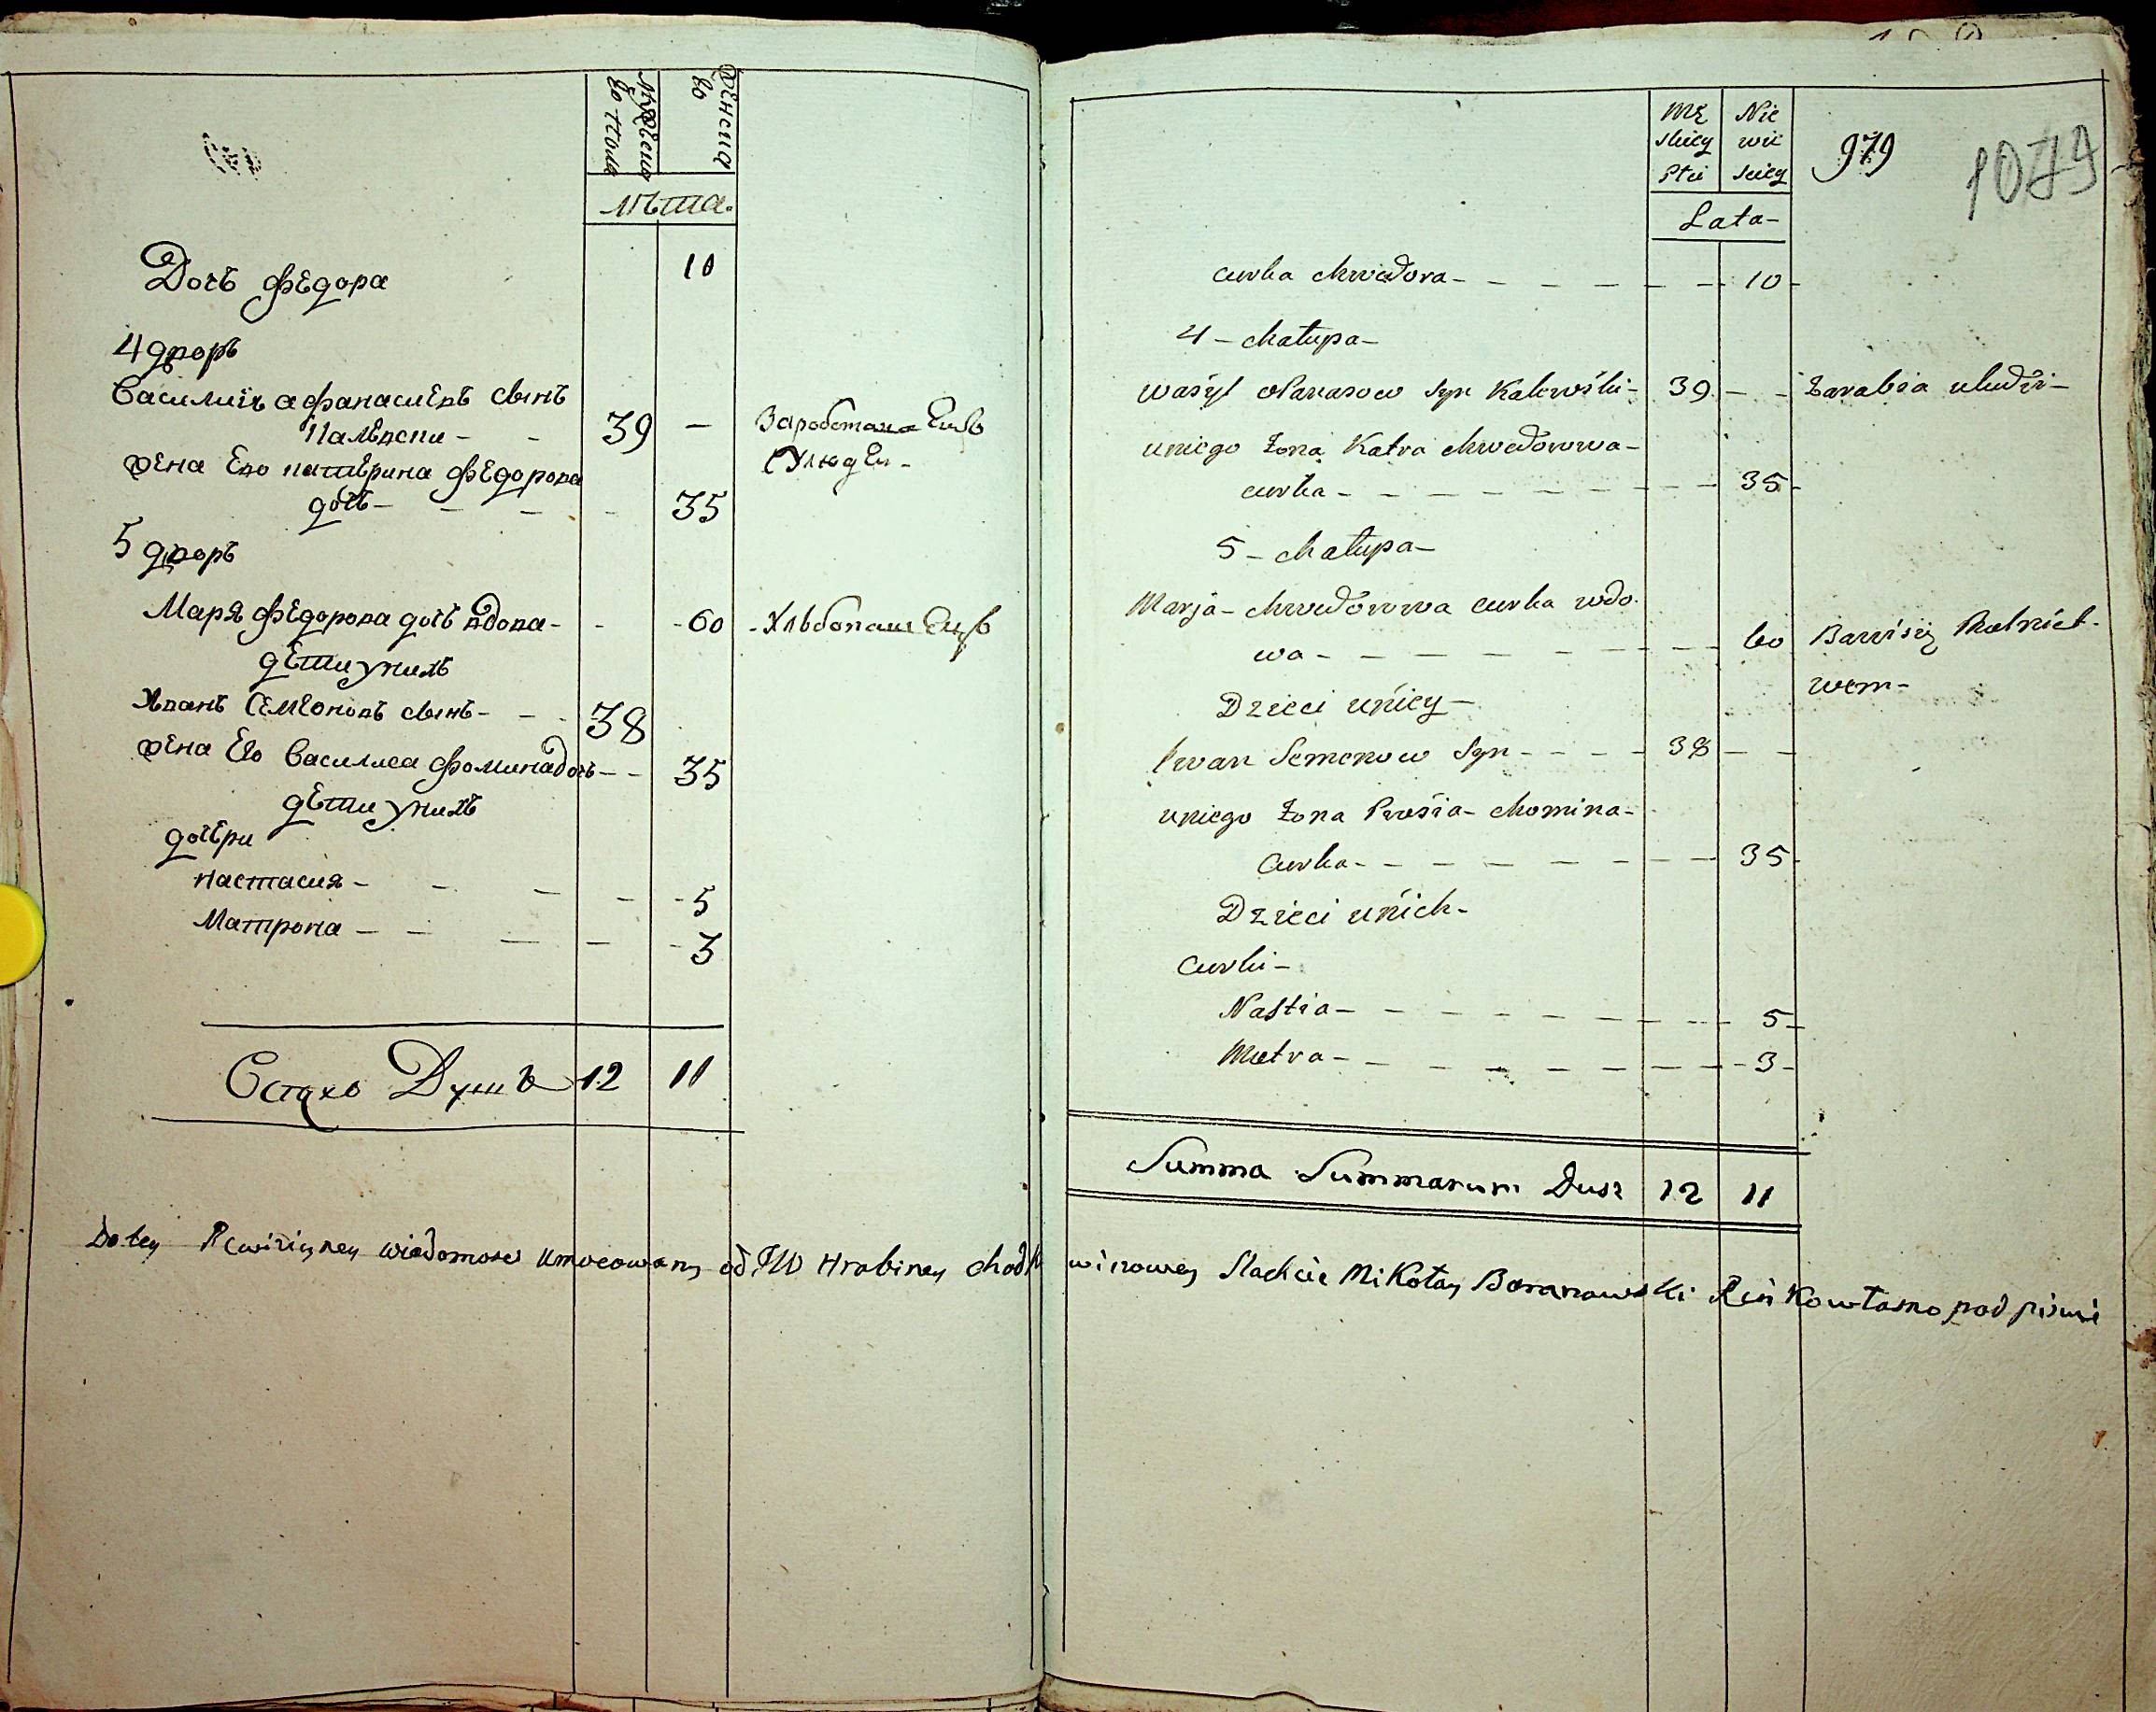 Мужеско
во пола
Женска
во
Лѣта.
Дочь Федора 10
4 дворъ
Василий Афанасиевъ сынъ
Калевски - - 39 — Заработокъ Емлѣ
Жена Ево Катерина Федорова сулюдей -
дочь - - - - 35
5 дворъ
Маря Федорова дочь вдова - - - 60 - Хлѣбопашецъ
дети у нихъ
Иванъ Семионовъ сынъ - - - 38
Жена Его Василиса Фомина дочь - - 35
дети у нихъ
дочери
Настасия - - - - - 5
Матрона - - - - - 3
Душъ 12 11
Mę Nie
skiey wie
Płci skiey
Lata -
979
1079
curka Chwedora - - - - - - - 10 -
4 - Chałupa -
Wasyl Panasow Syn Kalewski - 39 - - Zarabia uludzi -
uniego Zona Katra Chwedorowa -
curka - - - - - - - - 35 -
5 - Chałupa -
Marja - Chwedorowa curka wdo.
wa - - - - - - - - 60 Bawisię Rolnict.
wem -
Dzieci unicy -
Iwan Semenow Syn - - - - 38 - -
uniego Zona Chomina -
Curka - - - - - - - - 35 -
Dzieci unich -
Curki -
Nastia - - - - - - - - - 5 -
Motra - - - - - - - - - 3 -
Summa Summarum Dusz 12 11
Do tey Rewiziyney wiadomosci umocowany od JW Hrabiney Chodkiwiczowey Slachcic Mikołay Baranowski